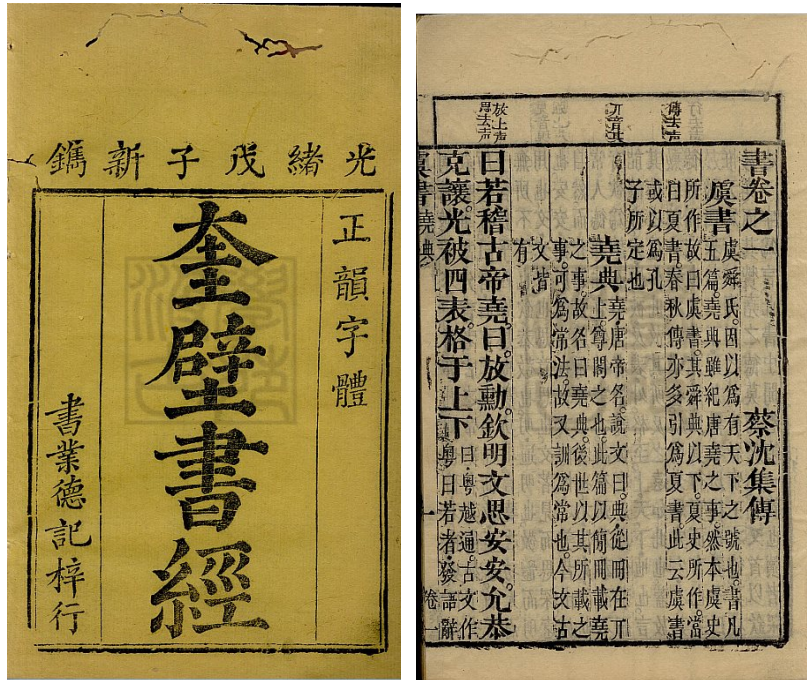 光緒戊子新鐫
正韻字體
奎壁書經
書業德記梓行
傳去声
丌音其
放上声
思去声
書卷之一 蔡沈集傳
虞書 虞舜氏。因以爲有天下之號也。書凡
五篇。堯典雖紀唐堯之事。然本虞史
所作。故曰虞書。其舜典以下。夏史所作。當
曰夏書。春秋傳亦多引爲夏書。此云虞書
或以爲孔
子所定也
堯典 堯唐帝名。說文曰。典從冊在丌
上。尊閣之也。此篇以簡冊載堯
之事。故名曰堯典。後世以其所載之
事。可爲常法。故又訓爲常也。今文古
文皆
有
曰若稽古帝堯。曰放勳。欽明文思安安。允恭
克讓。光被四表。格于上下 曰粵越通。古文作
粵。曰若者。發語辭
虞書 堯典 一 卷一